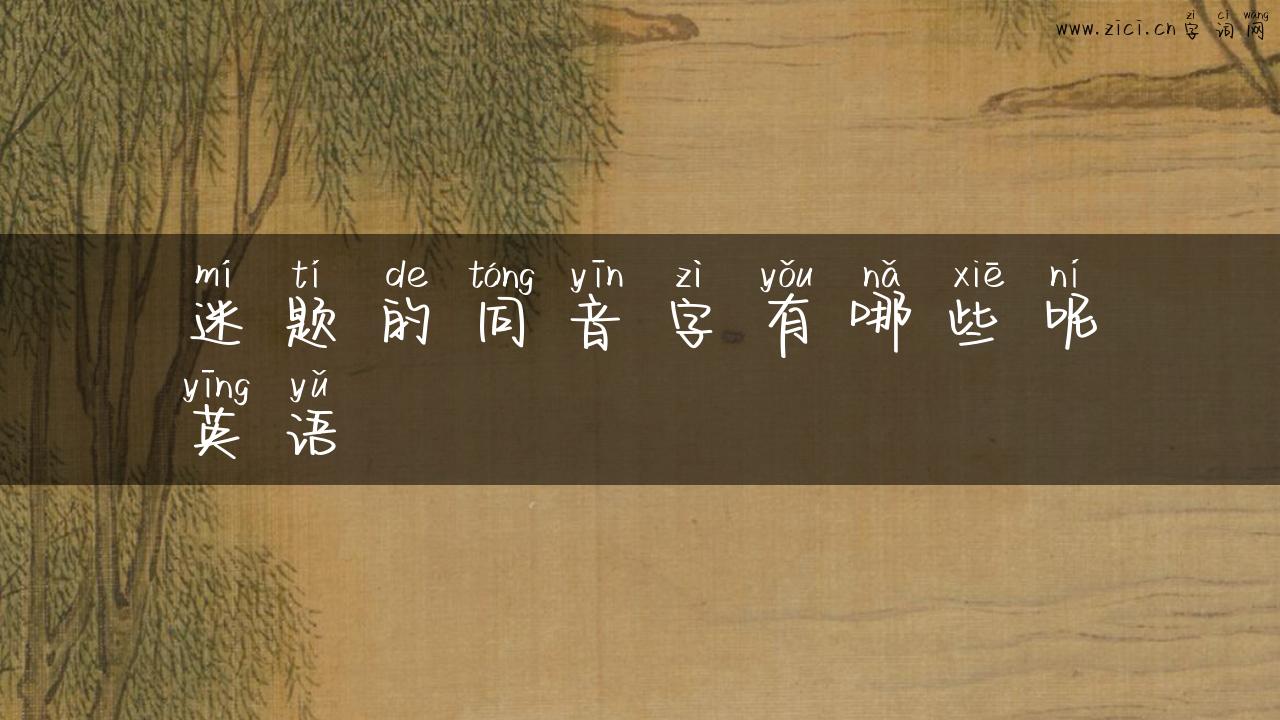 zì cí wǎng
www.zici.cn 字词网
mí tí de tóng yīn zì yǒu nǎ xiē ní
迷题的同音字有哪些呢
yīng yǔ
英语